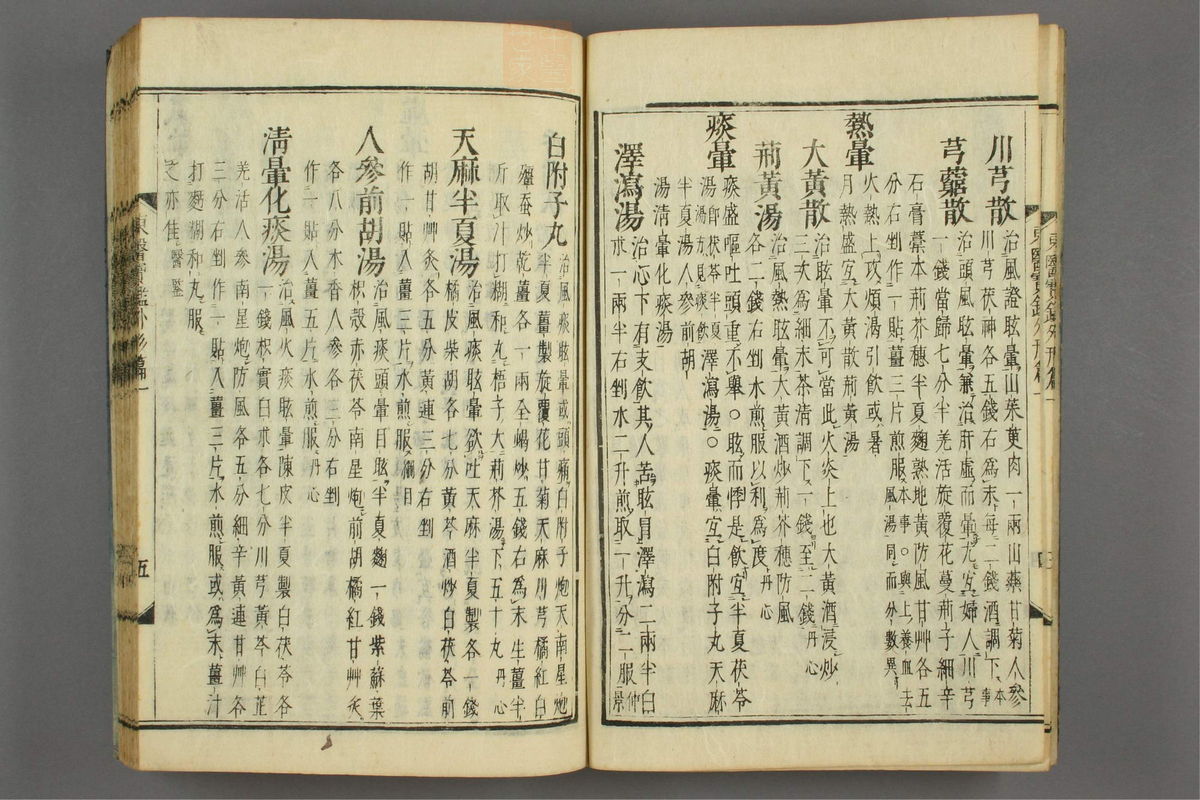 川芎散治風證眩暈山茱萸肉一兩山藥甘菊人參
川芎茯神各五錢右爲末每二錢酒調下本事
芎藭散治頭風眩暈兼治肝虛而暈尤宜婦人川芎
一錢當歸七分半羌活旋覆花蔓荊子細辛
石膏藁本荊芥穗半夏麴熟地黃防風甘艸各五
分右剉作一貼薑三片煎服本事○與上養血去風湯同而分數異
熱暈
火熱上攻煩渴引飮或暑
月熱盛宜大黃散荊黃湯
大黃散治眩暈不可當此火炎上也大黃酒浸炒
三次爲細末茶淸調下一錢至二錢丹心
荊黃湯治風熱眩暈大黃酒炒荊芥穗防風
各二錢右剉水煎服以利爲度丹心
痰暈
痰盛嘔吐頭重不擧○眩而悸是飮宜半夏茯苓
湯卽茯苓半夏湯方見痰飮澤瀉湯○痰暈宜白附子丸天麻
半夏湯人參前胡
湯淸暈化痰湯
澤瀉湯治心下有支飮其人苦眩冒澤瀉二兩半白
朮一兩半右剉水二升煎取一升分二服仲景
白附子丸治風痰眩暈或頭痛白附子炮天南星炮
半夏薑製旋覆花甘菊天麻川芎橘紅白
殭蚕炒乾薑各一兩全蝎炒五錢右爲末生薑半
斤取汁打糊和丸梧子大荊芥湯下五十丸丹心
天麻半夏湯治風痰眩暈欲吐天麻半夏製各一錢
橘皮柴胡各七分黃芩酒炒白茯苓前
胡甘艸炙各五分黃連三分右剉
作一貼入薑三片水煎服綱目
人參前胡湯治風痰頭暈目眩半夏麴一錢紫蘇葉
枳殼赤茯苓南星炮前胡橘紅甘艸炙
各八分木香人參各三分右剉
作一貼入薑五片水煎服丹心
淸暈化痰湯治風火痰眩暈陳皮半夏製白茯苓各
一錢枳實白朮各七分川芎黃芩白芷
羌活人參南星炮防風各五分細辛黃連甘艸各
三分右剉作一貼入薑三片水煎服或爲末薑汁
打麵糊和丸服
之亦佳醫鑒
東醫寶鑑外形篇一
五